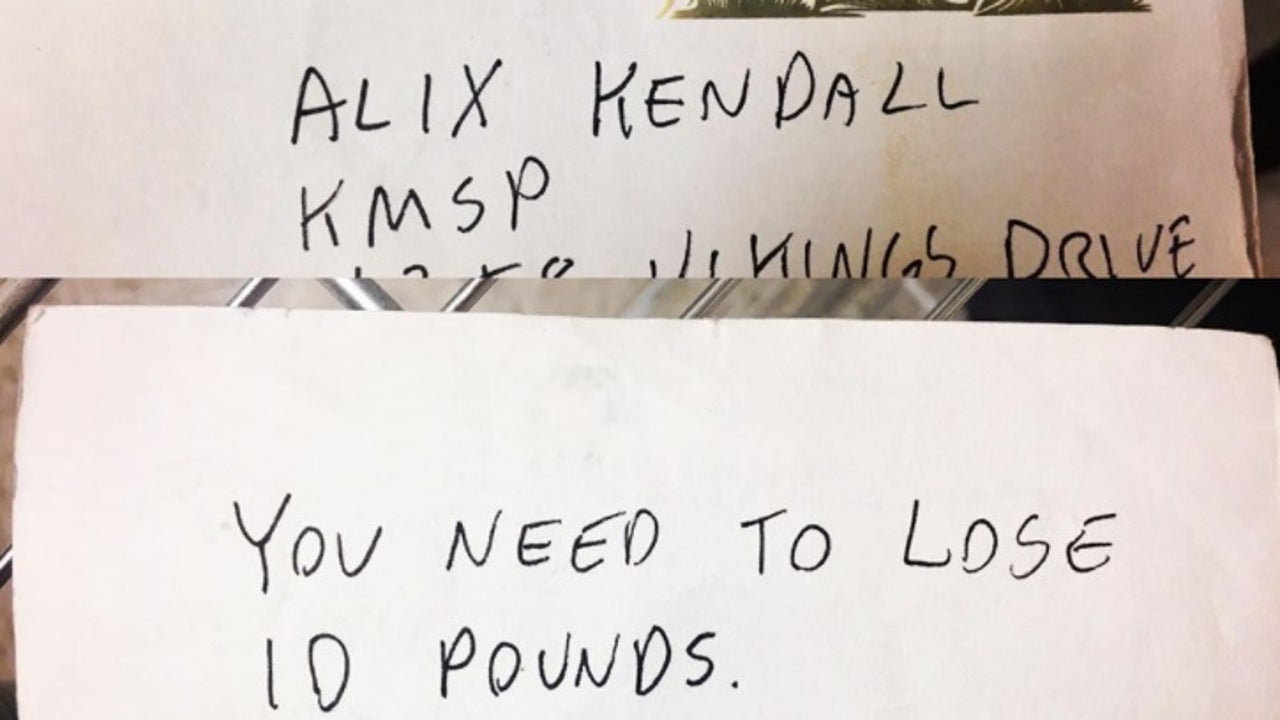 ALIX KENDALL
KMSP
VIKINGS DRIVE
YOU NEED TO LOSE
10 POUNDS.